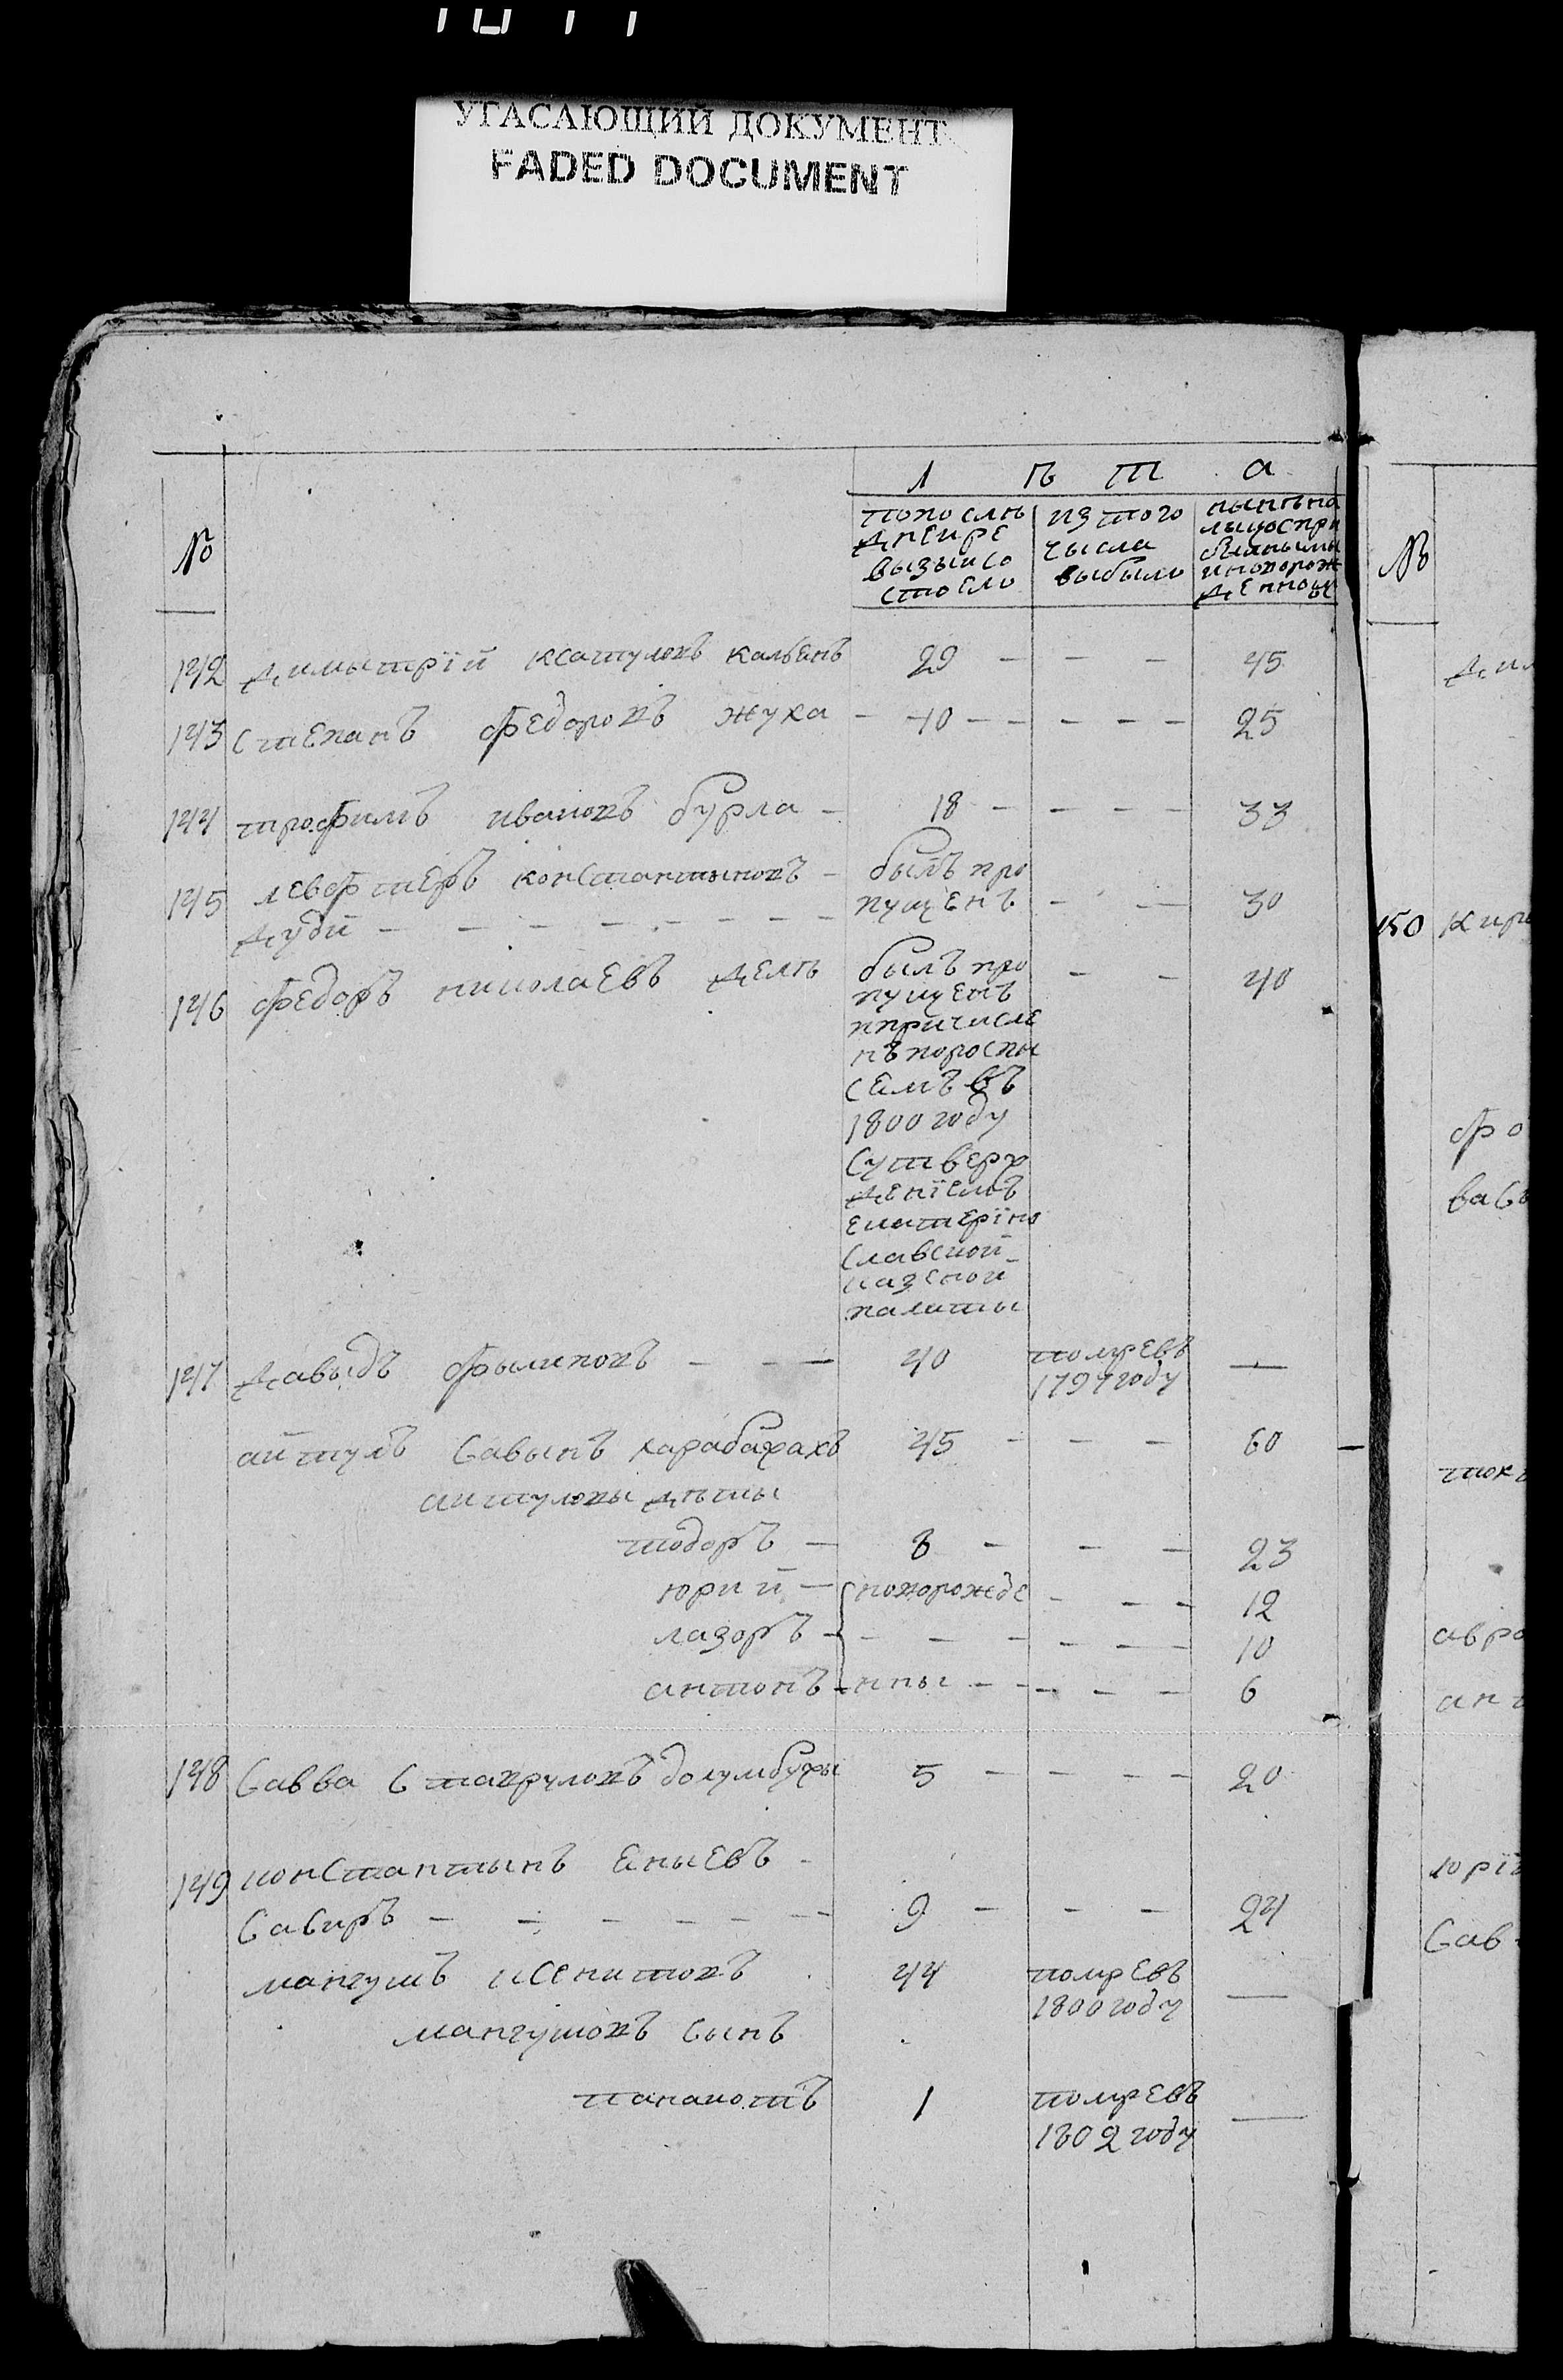 УГАСАЮЩИЙ ДОКУМЕНТ
FADED DOCUMENT
№
л ѣ т а
по послѣ
дней ре
визыи со
стояло
из того
числа
выбыло
нынѣ на
лыцо спри
былымы
и новорож
денным
№
142 димытрїй ксатуловъ кальенъ 29 — — — 45
143 степанъ федоровъ жука — 10 — — — — — 25
144 трофимъ ивановъ бурла — 18 — — — — 33
145 левфтеръ константыновъ — былъ про
дуби — — — — — — — пущенъ — — 30
146 федоръ николаевъ дели былъ про — — 40
пущенъ
и причисле
нъ по роспы
самъ въ
1800 году
с утверж
денїемъ
екатерїно
славской
казеной
палаты
147 давыдъ фылиповъ — — — 40 помревъ —
1797 году
айтулъ савынъ карабажакъ 45 — — — 60
айтуловы дѣты
тодоръ — 8 — — — 23
юрий — новорожде — — — 12
лазоръ — — — — — — — 10
антонъ — нны — — — — — 6
148 савва ставруловъ долумбужы 5 — — — — 20
149 константынъ еныевъ —
савиръ — — — — — — 9 — — — 24
мангушъ ксенитовъ 44 помревъ —
1800 году
мангушовъ сынъ
панаиотъ 1 помревъ —
1802 году
150 кир
фо
вас
тов
авра
ан
юрї
сав